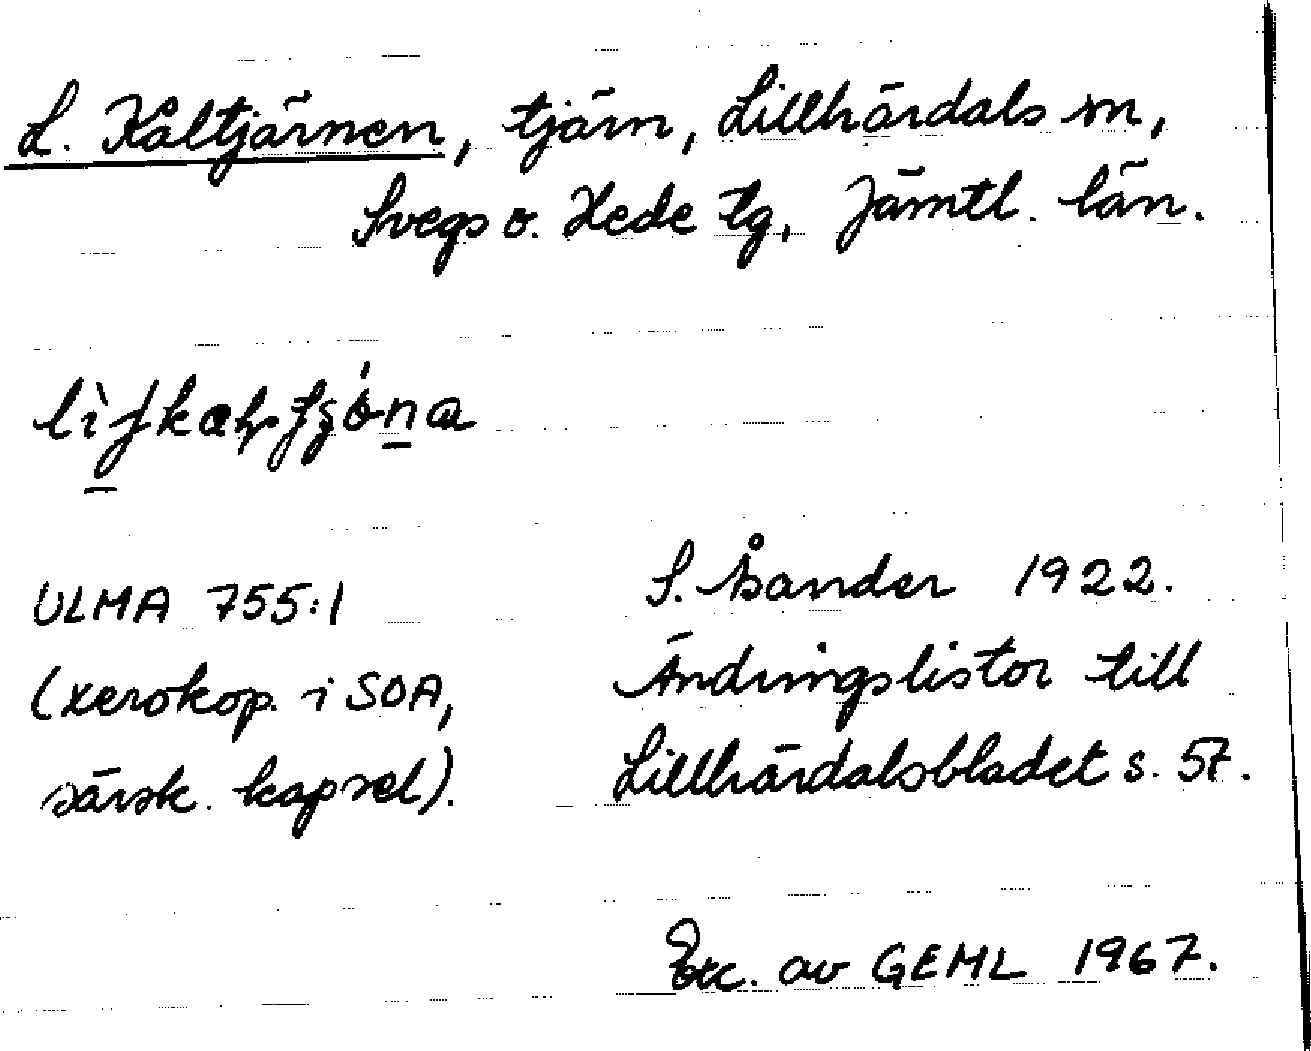 L. Kåltjärnen, tjärn, Lillhärdals sn,
Svegs o. Hede tg, Jämtl. län.
ULMA 755:1
S. Åsander 1922.
(xerokop. i SOA,
Ändringslistor till
särsk. kapsel).
Lillhärdalsbladet s. 57.
Exc. av GEML 1967.